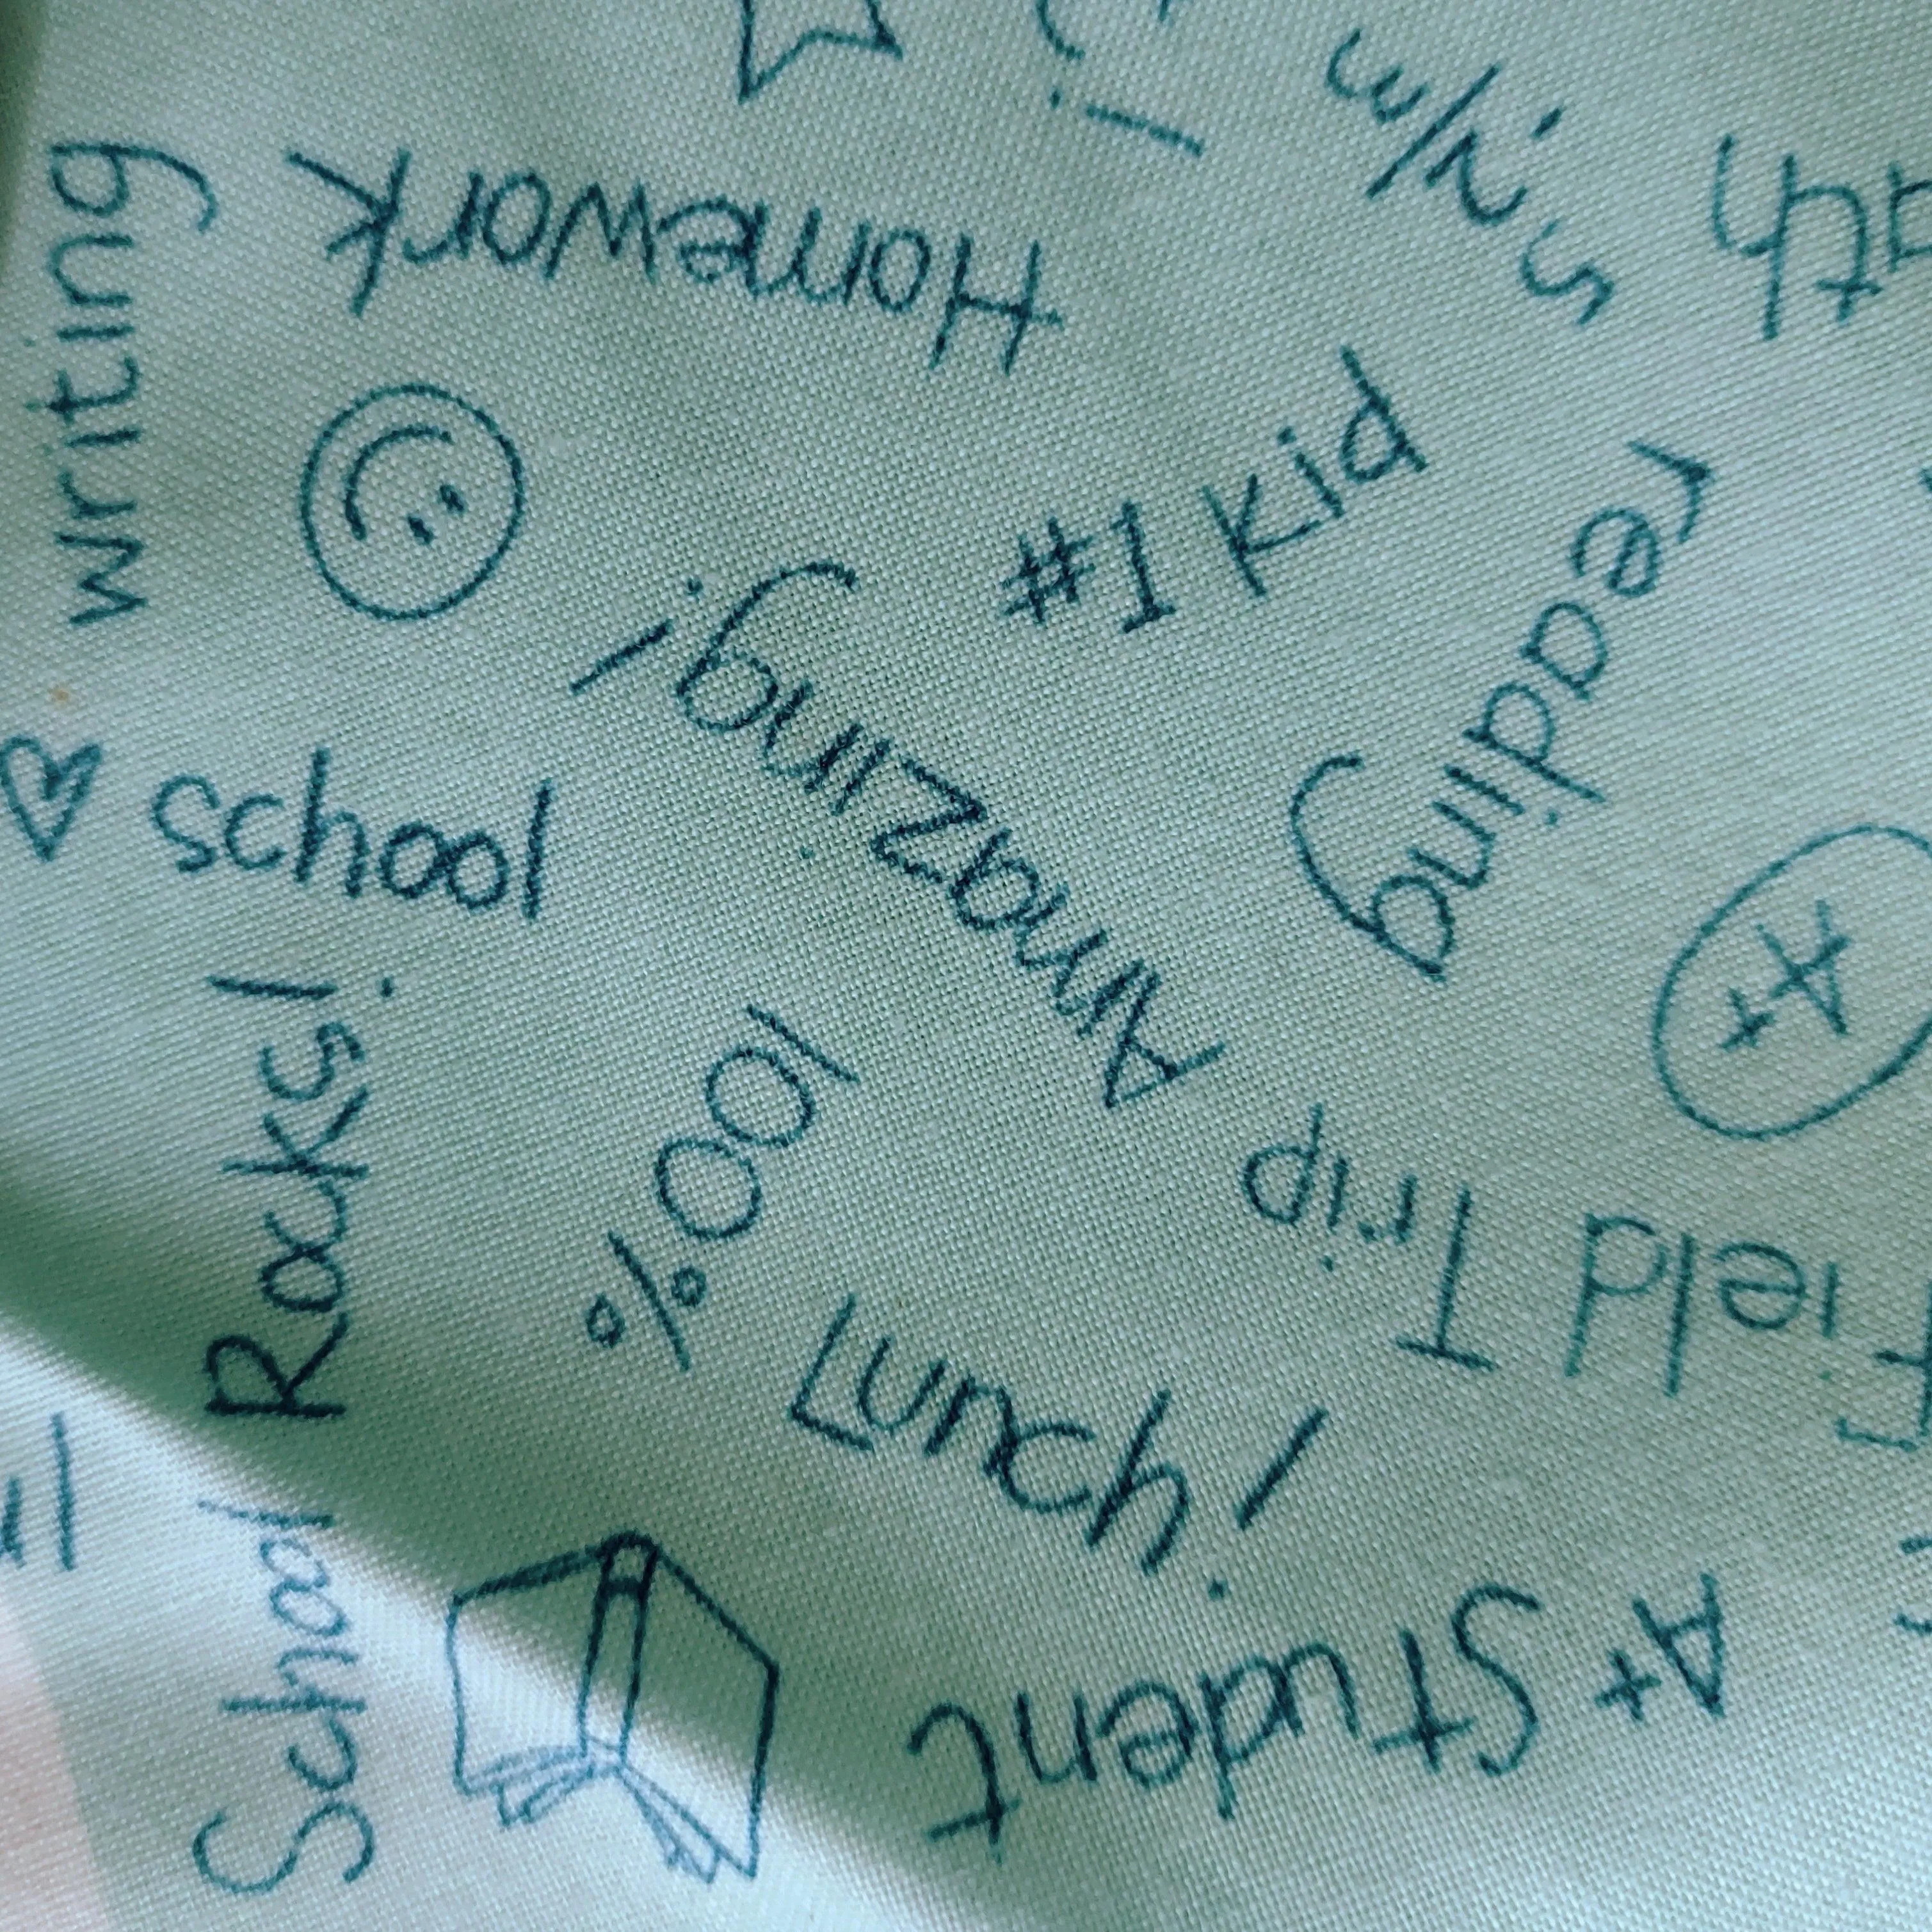 writing
Homework
#1 Kid
reading
Amazing!
♡ school
School Rocks!
100%
A+
Field Trip
Lunch!
A+ Student